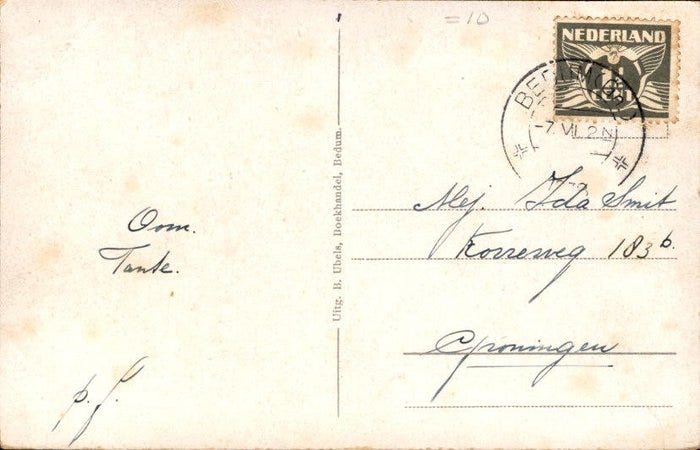 =10
NEDERLAND
BEDUM
-7.VII.2N
Uitg. B. Ubels, Boekhandel, Bedum.
Mej. Ida Smit
Korreweg 183b.
Groningen
Oom.
Tante.
p. f.